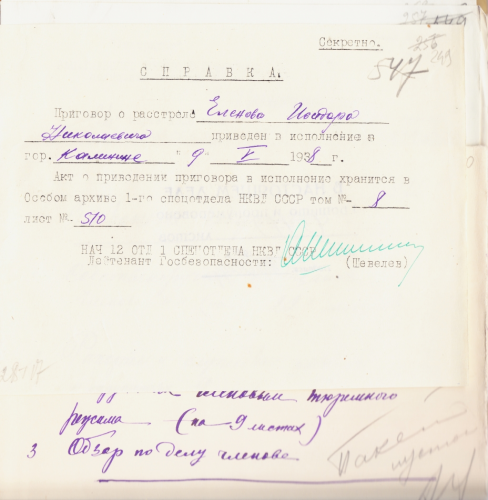 Секретно.
547
249
СПРАВКА.
Приговор о расстреле Еленова Нестора
Николаевича приведен в исполнение в
гор. Калинине "9" V 1938 г.
Акт о приведении приговора в исполнение хранится в
Особом архиве 1-го спецотдела НКВД СССР том №- 8
лист №- 510
НАЧ 12 ОТД 1 СПЕЦОТДЕЛА НКВД СССР
Лейтенант Госбезопасности: (Шевелев)
тюремного
режима (на 9 листах)
3 Обзор по делу членов
Пакет
пустой